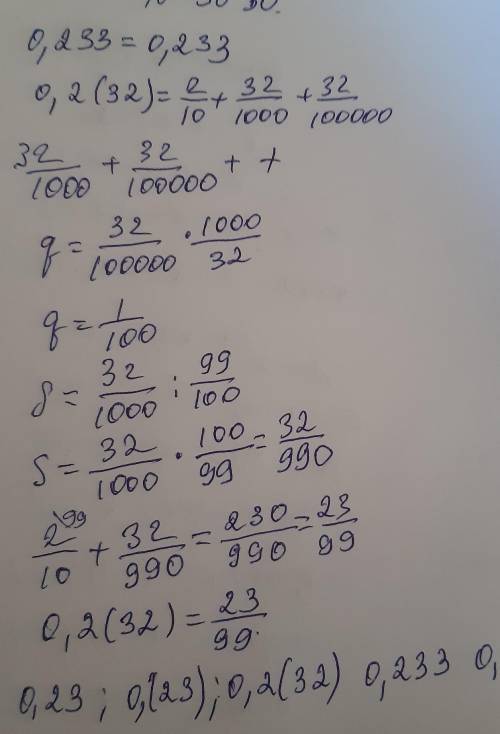 0,233 = 0,233
0,2(32) = 2/10 + 32/1000 + 32/100000
32/1000 + 32/100000 + +
q = 32/100000 · 1000/32
q = 1/100
S = 32/1000 : 99/100
S = 32/1000 · 100/99 = 32/990
2\99/10 + 32/990 = 230/990 = 23/99
0,2(32) = 23/99.
0,23 ; 0,(23) ; 0,2(32) 0,233 0,